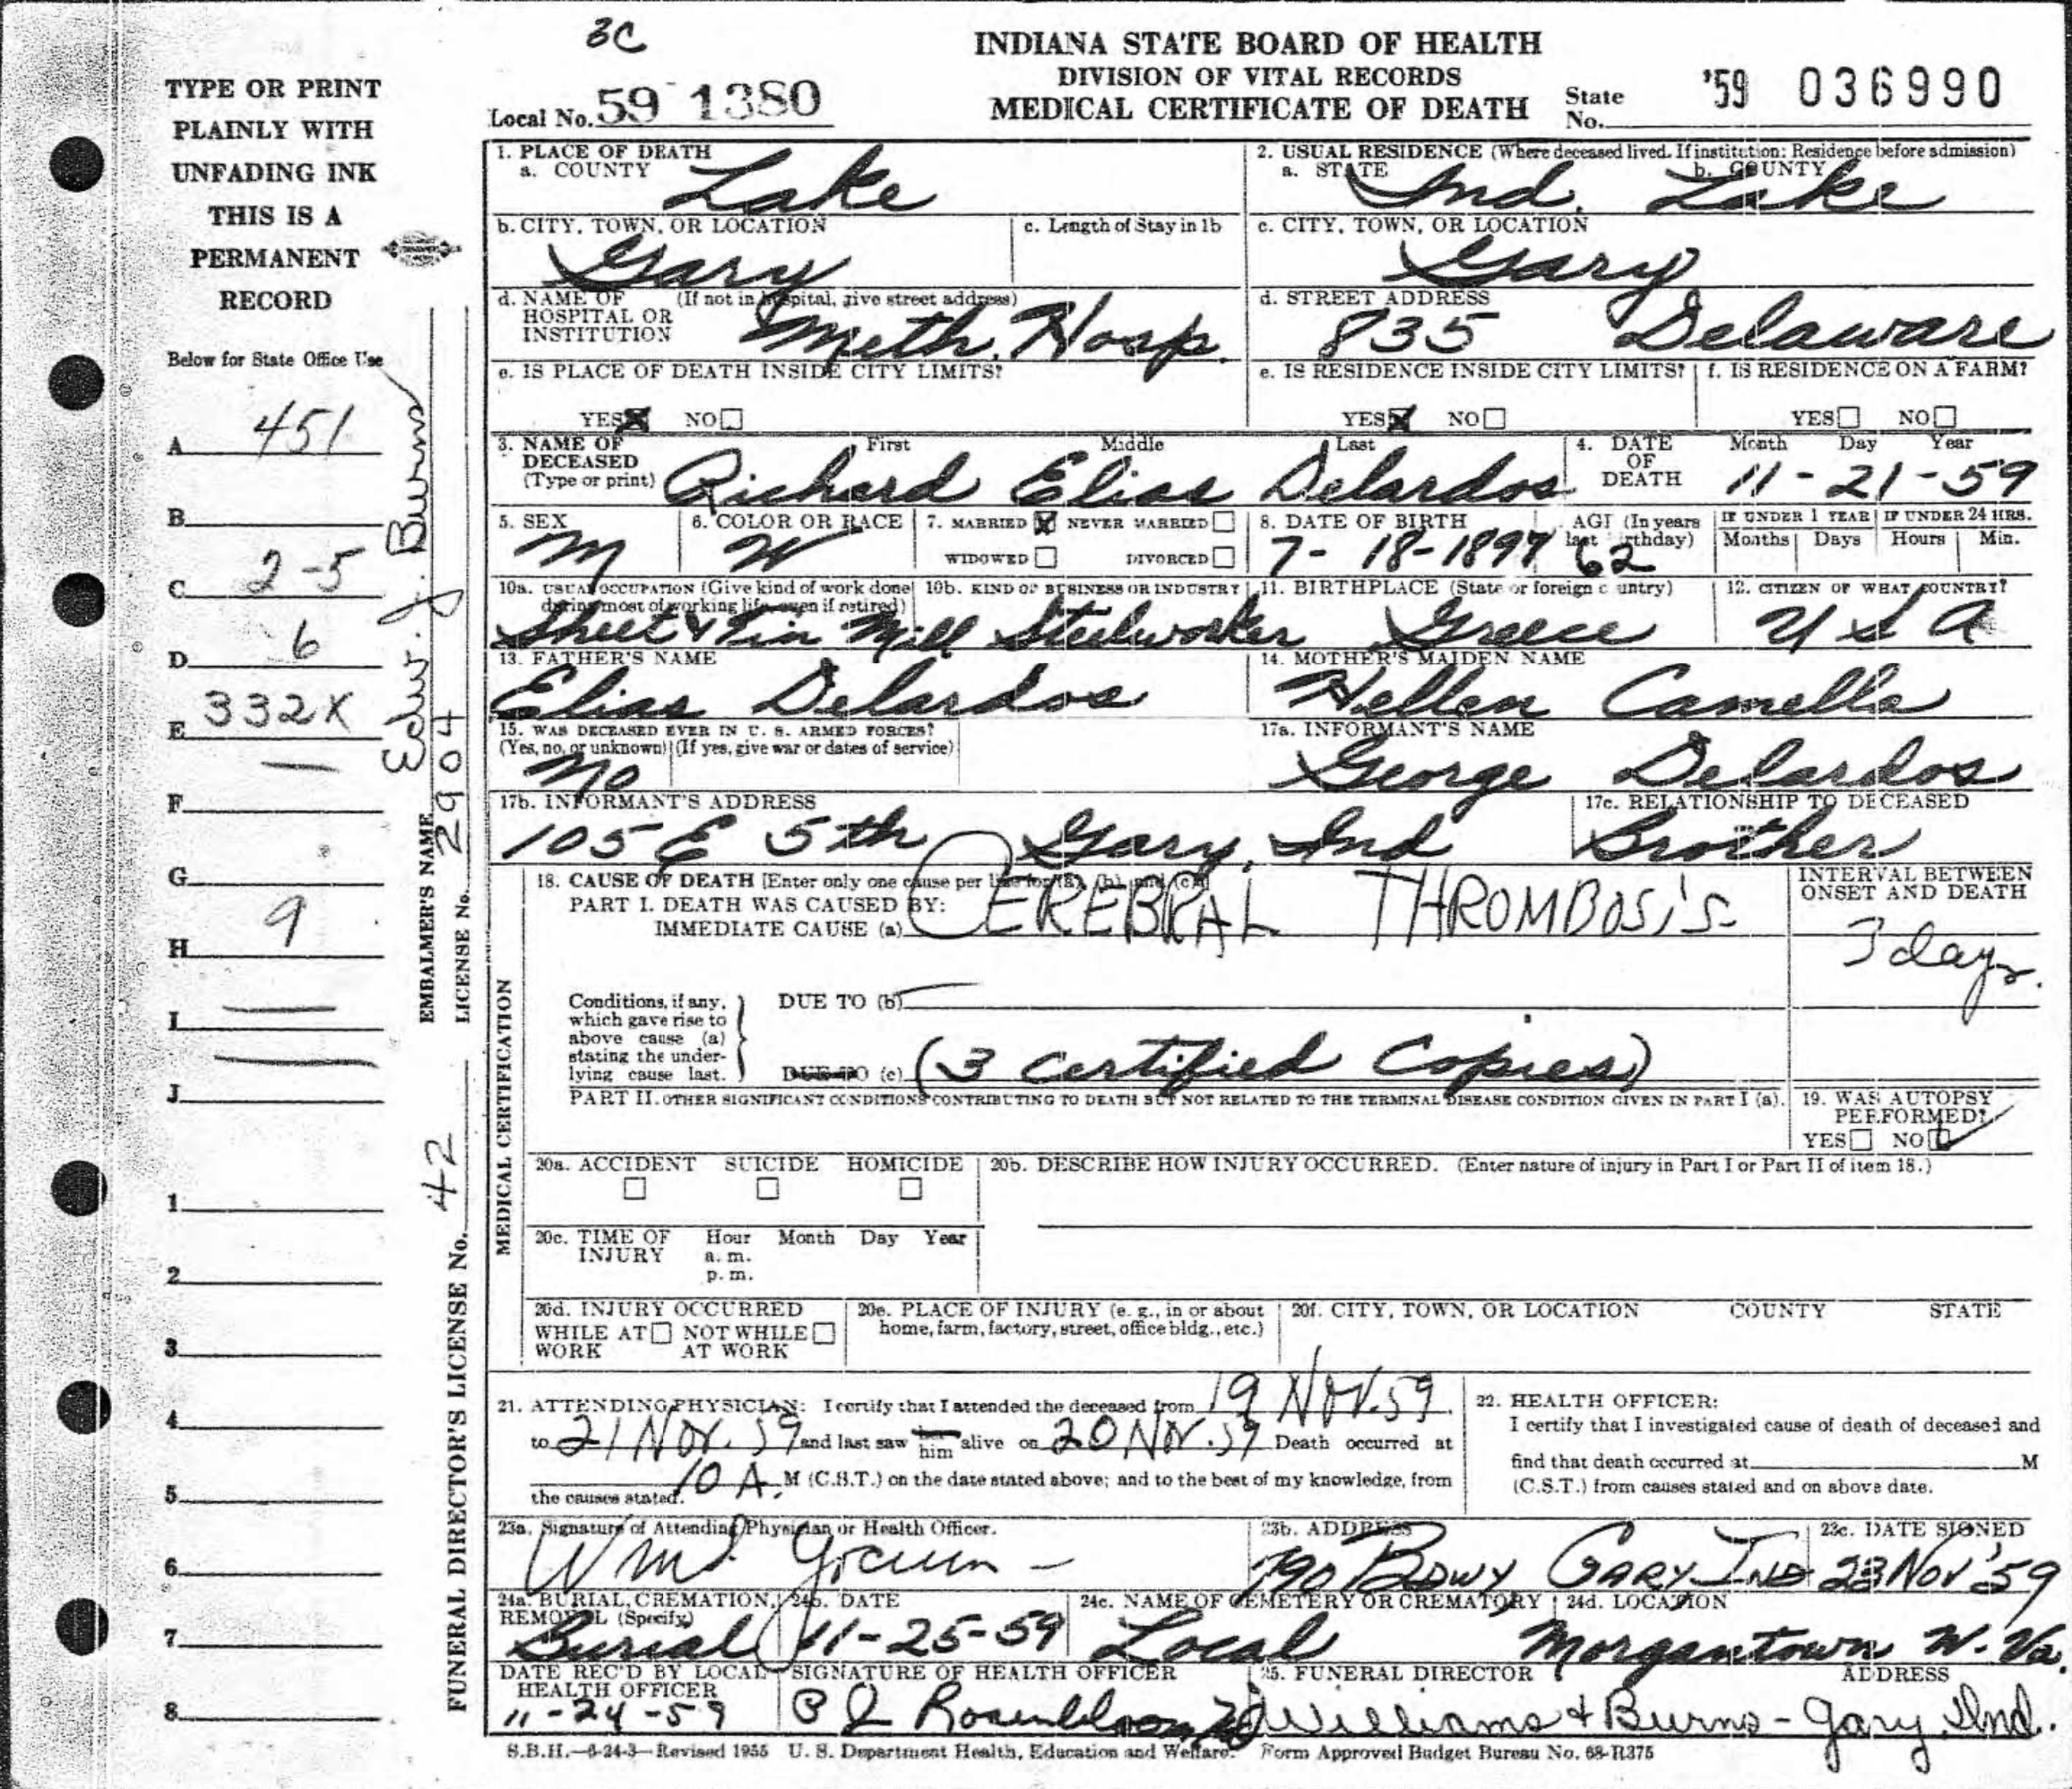 3C
INDIANA STATE BOARD OF HEALTH
DIVISION OF VITAL RECORDS
MEDICAL CERTIFICATE OF DEATH
Local No. 59 1380
State No. '59 036990
TYPE OR PRINT
PLAINLY WITH
UNFADING INK
THIS IS A
PERMANENT
RECORD
Below for State Office Use
A 451
B
C 2-5
D 6
E 332X
F —
G
H 9
I —
J —
1
2
3
4
5
6
7
8
EMBALMER'S NAME Edw. J. Burns
LICENSE No. 2904
FUNERAL DIRECTOR'S LICENSE No. 42
1. PLACE OF DEATH
a. COUNTY Lake
2. USUAL RESIDENCE (Where deceased lived. If institution: Residence before admission)
a. STATE Ind. b. COUNTY Lake
b. CITY, TOWN, OR LOCATION Gary
c. Length of Stay in 1b
c. CITY, TOWN, OR LOCATION Gary
d. NAME OF HOSPITAL OR INSTITUTION (If not in hospital, give street address) Meth. Hosp.
d. STREET ADDRESS 835 Delaware
e. IS PLACE OF DEATH INSIDE CITY LIMITS?
YES X NO
e. IS RESIDENCE INSIDE CITY LIMITS?
YES X NO
f. IS RESIDENCE ON A FARM?
YES NO
3. NAME OF DECEASED (Type or print) First Middle Last
Richard Elias Delardos
4. DATE OF DEATH Month Day Year
11-21-59
5. SEX M
6. COLOR OR RACE W
7. MARRIED X NEVER MARRIED
WIDOWED DIVORCED
8. DATE OF BIRTH 7-18-1897
AGE (In years last birthday) 62
IF UNDER 1 YEAR Months Days
IF UNDER 24 HRS. Hours Min.
10a. USUAL OCCUPATION (Give kind of work done during most of working life, even if retired)
10b. KIND OF BUSINESS OR INDUSTRY
Sheet & Tin Mill Steelworker
11. BIRTHPLACE (State or foreign country) Greece
12. CITIZEN OF WHAT COUNTRY? U S A
13. FATHER'S NAME Elias Delardos
14. MOTHER'S MAIDEN NAME Hellen Camella
15. WAS DECEASED EVER IN U. S. ARMED FORCES?
(Yes, no, or unknown) (If yes, give war or dates of service)
No
17a. INFORMANT'S NAME George Delardos
17b. INFORMANT'S ADDRESS 105 E 5th Gary, Ind
17c. RELATIONSHIP TO DECEASED Brother
MEDICAL CERTIFICATION
18. CAUSE OF DEATH [Enter only one cause per line for (a), (b), and (c)]
PART I. DEATH WAS CAUSED BY:
IMMEDIATE CAUSE (a) CEREBRAL THROMBOSIS
INTERVAL BETWEEN ONSET AND DEATH
3 days.
Conditions, if any, which gave rise to above cause (a) stating the underlying cause last.
DUE TO (b) —
DUE TO (c) (3 Certified Copies)
PART II. OTHER SIGNIFICANT CONDITIONS CONTRIBUTING TO DEATH BUT NOT RELATED TO THE TERMINAL DISEASE CONDITION GIVEN IN PART I (a).
19. WAS AUTOPSY PERFORMED?
YES NO ✓
20a. ACCIDENT SUICIDE HOMICIDE
20b. DESCRIBE HOW INJURY OCCURRED. (Enter nature of injury in Part I or Part II of item 18.)
20c. TIME OF INJURY Hour Month Day Year
a. m.
p. m.
20d. INJURY OCCURRED
WHILE AT WORK NOT WHILE AT WORK
20e. PLACE OF INJURY (e. g., in or about home, farm, factory, street, office bldg., etc.)
20f. CITY, TOWN, OR LOCATION COUNTY STATE
21. ATTENDING PHYSICIAN: I certify that I attended the deceased from 19 Nov. 59
to 21 Nov. 59 and last saw her him alive on 20 Nov. 59 Death occurred at
10 A. M (C.S.T.) on the date stated above; and to the best of my knowledge, from
the causes stated.
22. HEALTH OFFICER:
I certify that I investigated cause of death of deceased and
find that death occurred at M
(C.S.T.) from causes stated and on above date.
23a. Signature of Attending Physician or Health Officer.
Wm.
23b. ADDRESS 790 BDWY GARY IND
23c. DATE SIGNED 23 NOV '59
24a. BURIAL, CREMATION, REMOVAL (Specify) Burial
24b. DATE 11-25-59
24c. NAME OF CEMETERY OR CREMATORY Local
24d. LOCATION Morgantown W. Va.
DATE REC'D BY LOCAL HEALTH OFFICER 11-24-59
SIGNATURE OF HEALTH OFFICER P J Rosenbloom MD
25. FUNERAL DIRECTOR ADDRESS
Williams & Burns - Gary, Ind.
S.B.H.—6-24-3—Revised 1955 U. S. Department Health, Education and Welfare. Form Approved Budget Bureau No. 68-R375